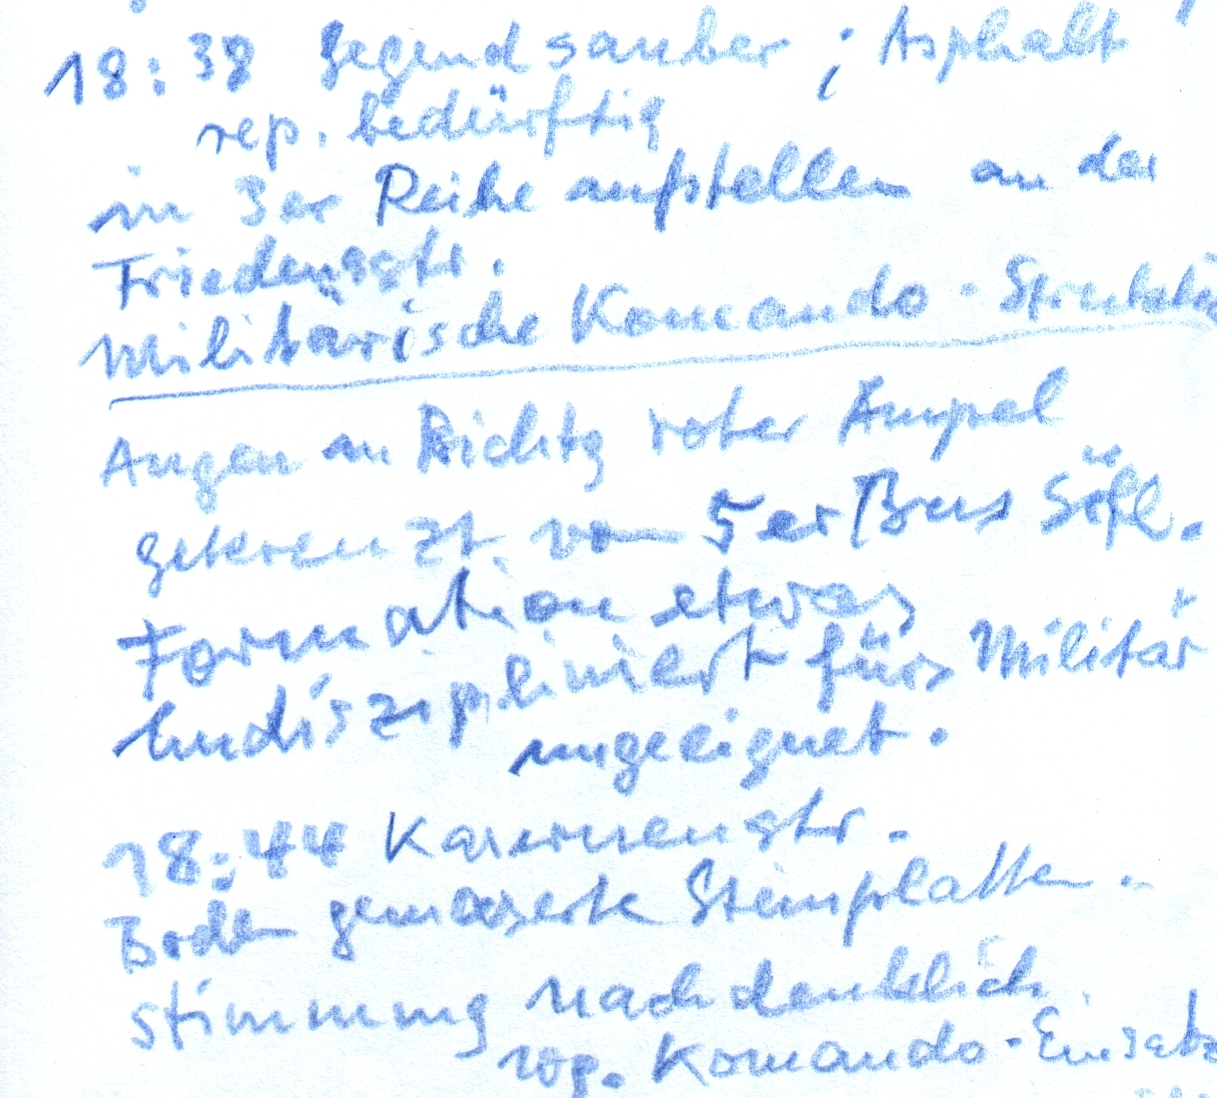 18:38 Gegend sauber ; Asphalt
rep. bedürftig
in 3er Reihe aufstellen an der
Friedensstr.
Militärische Komando-
Augen in Richtg roter Ampel
gekreuzt. vom 5er Bus Söfl.
Formation etwas
undiszipliniert fürs Militär
ungeeignet.
18:44 Kasernenstr.
Boden gemaserte Steinplatten -
stimmung nachdenklich
wg. Komando-Einsatz